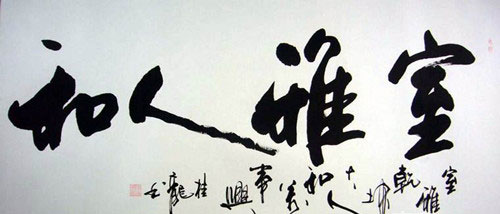 室雅人和
室雅
乾坤
大
和人
事興
桂龍